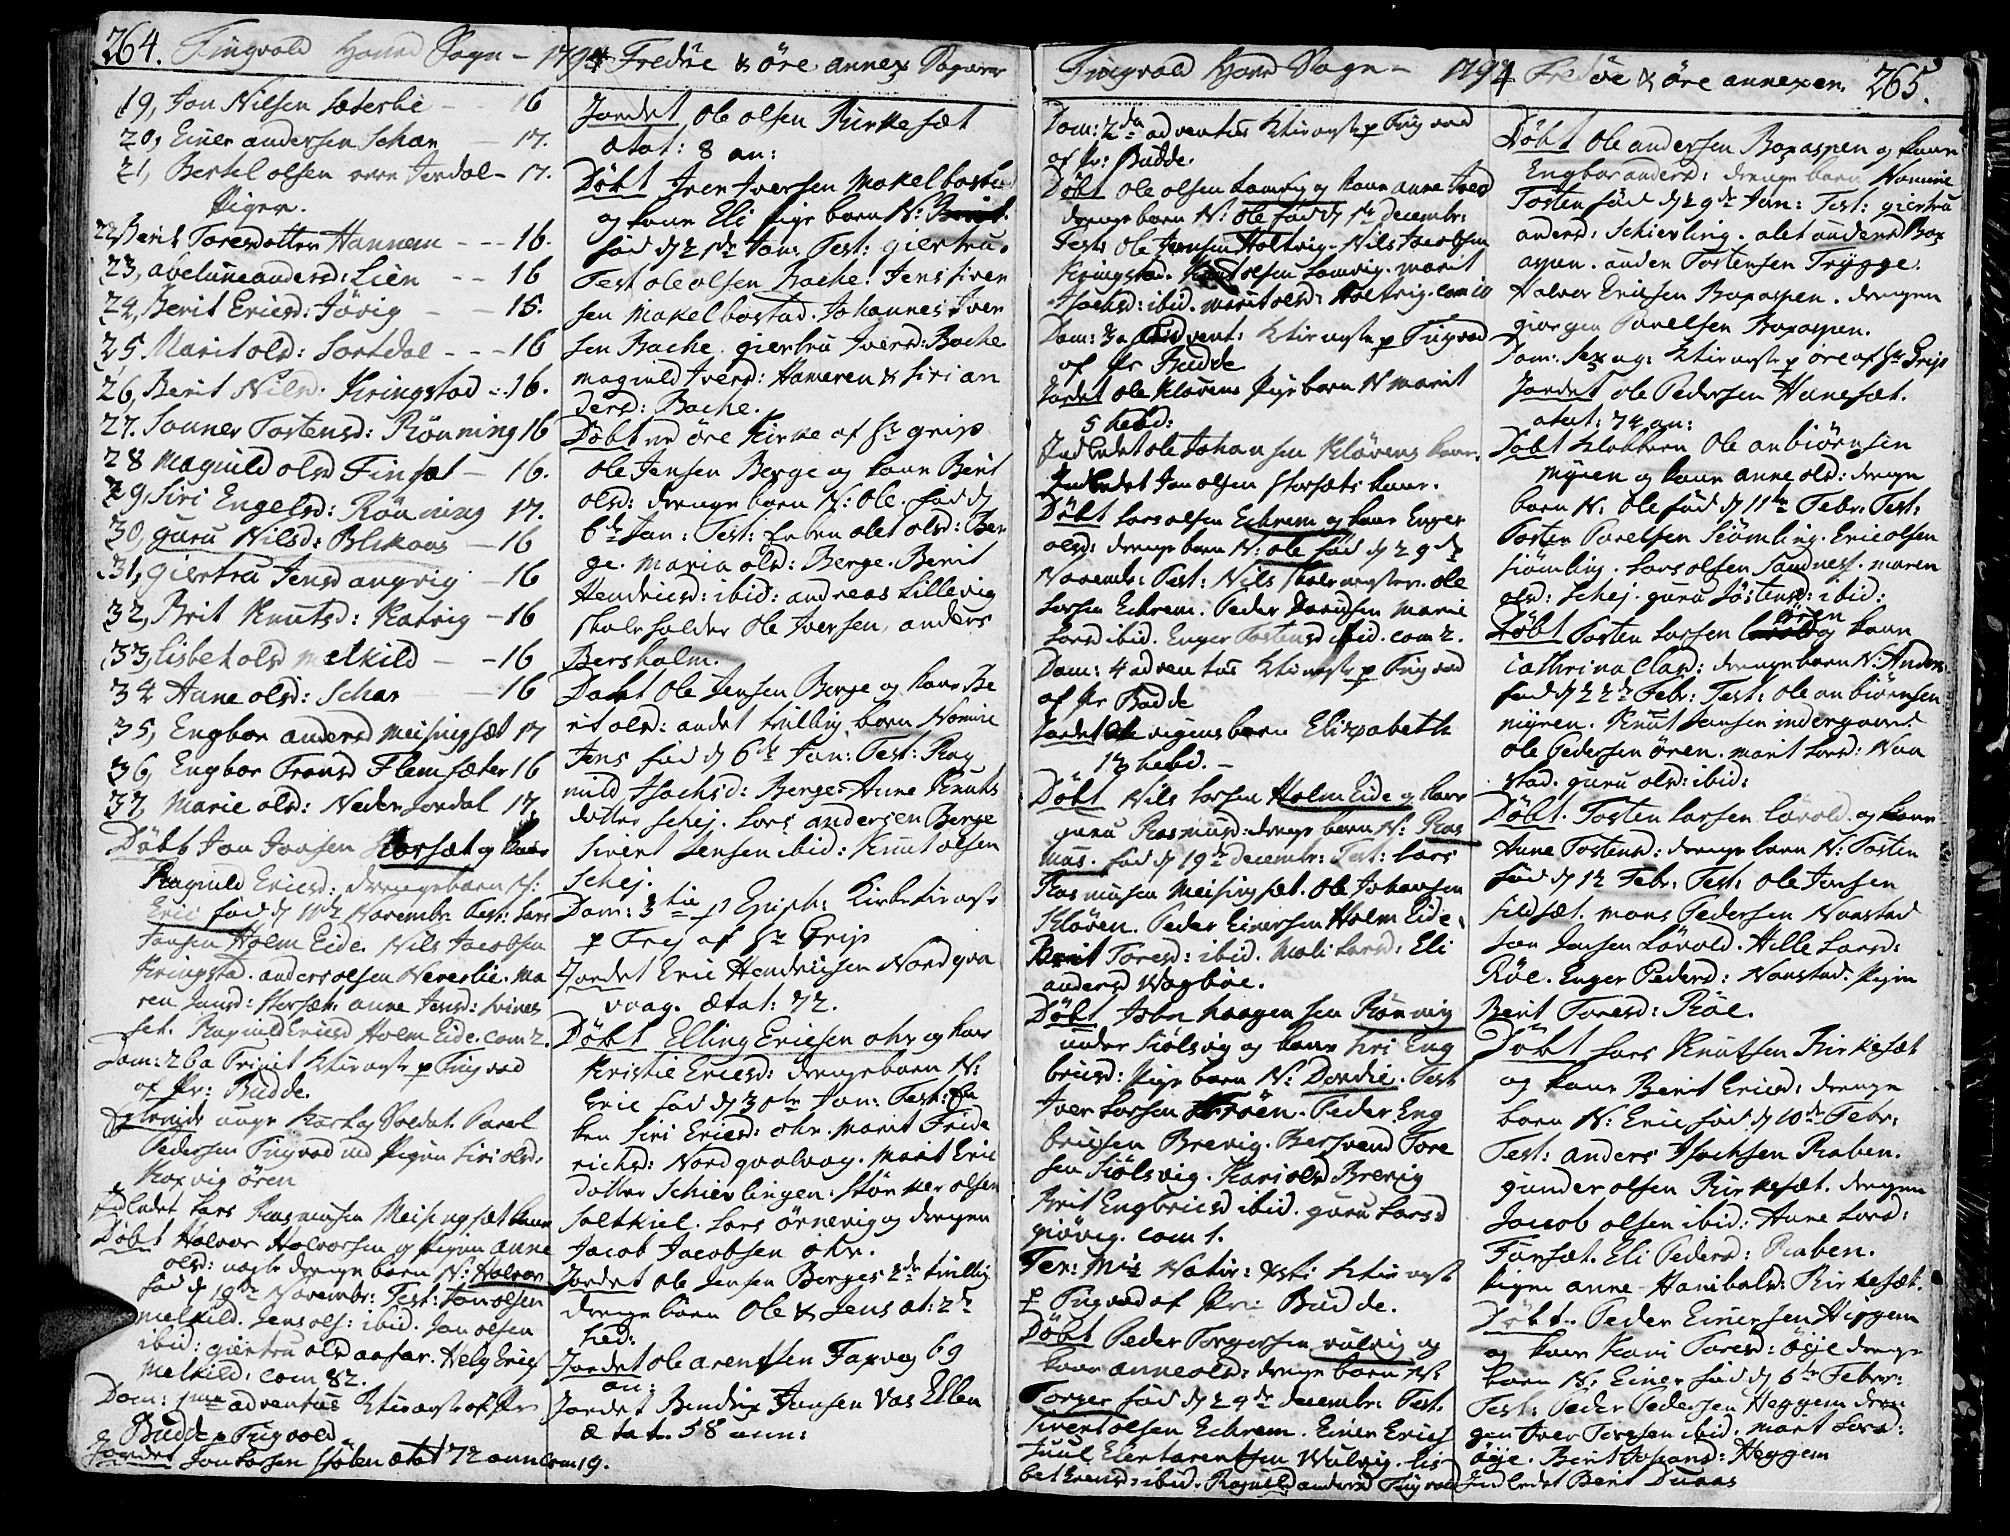 264. Tingvold Hoved Sogn - 1794
19, Jon Nilsen Sæterlie - - 16
20, Einer andersen Schar - 17.
21, Bertel olsen Jordal - 17.
Piger.
22 Berit Toresdotter Hannem - - - 16.
23, abelune anders: Lien - - 16
24, Berit Ericsd: Jövig - - 15.
25 Marit olsd: Sortdal - - - 16
26, Berit Nilsd: Kringstad - - 16.
27. Sonner Tostensd: Rönning 16
28 Magnild olsd Finset - 16.
29, Siri Engelsd: Rönning 17.
30, guru Nilsd: Blikaas - 16
31, giertru Jensd angvig - 16
32, Brit Knutsd: Katvig - 16
33, Lisbet olsd melkild - - 16
34 Anne olsd: Schar - 16
35, Engbor andersd Meisingsæt 17
36, Engbor Tronsd Flemsæter 16
37, Marie olsd: Neder Jordal 17.
Döbt Jon Jonsen Storsæt og kone
Ragnild Ericsd: drengebarn N:
Eric föd d 10de Novembr: Test: Lars
Jonsen Holm Eide. Nils Jacobsen
Kringstad. anders olsen Neverlie. Ma
ren Jonsd: Storsæt. anne Jensd:
set. Ragnild Ericsd Holm Eide. com 2.
Dom: 26a Trinit p Tingvod
af Hr: Budde.
unge Karl og Soldat Povel
Pedersen Tingvod med Pigen Siri olsd:
Koxvig ören
Indledet Lars Rasmusen Meisingsæt kone
Döbt Halvor Halvorsen og pigen anne
olsd: uægte drenge barn N: Halvor
föd d 19de Novembr: Test: Jon olsen
melkild. Jens ols: ibid. Jon olsen
ibid: giertru olsd aasar. Helg Erics
Melkild: com 82.
Dom: 1ma adventus af Hr
Budde p Tingvold.
Jordet Jon Larsen Stölen ætat 72 ann com 19.
Fredöe & öre annex Sogner
Jordet ole olsen Kirkesæt
ætat: 8 an:
Döbt Iver Iversen Makelbostad
og kone Eli pige barn N: Berit.
föd d 21de Jan: Test: giertru
Test ole olsen Bache. Jens Iver
sen Makelbostad. Johannes Iver
sen Bache. giertru Iversd: Bache
magnild Iversd: Hameren & Siri an
dersd: Bache.
Döbt ved öre Kirke af Hr grip
Ole Jensen Berge og kone Berit
olsd: drenge barn N: ole. föd d
6de Jan: Test: olet olsd: Ber
ge. Maria olsd: Berge. Berit
Hendricsd: ibid: andreas Lillevig
skoleholder ole Iversen, anders
Bersholm.
Döbt ole Jensen Berge og kone Be
rit olsd: andet tvilling barn Nomine
Jens föd d 6de Jan: Test: Rag
nild Isachsd: Berge: Anne Knuts
dotter Schej. Lars andersen Berge
Sivert Jensen ibid: Knut olsen
Schej.
Dom: 3tia p Epiph:
p Frej af Hr Grip
Jordet Eric Hendricsen Nordqva
vaag. ætat: 72.
Döbt Elling Ericsen ohr og kone
Kristie Ericsd: drengebarn N:
Eric föd d 30te Jan: Test:
Siri Ericsd: ohr. Marit Fride
richsd: Nordqvalvog. Marit Eric
dotter Schievlingen: Störker olsen
Saltkiel. Lars örnevig og drengen
Jacob Jacobsen ohr.
Jordet ole Jensen Berges 2de tvilling
drenge börn ole & Jens æt: 2de
hed:
Jordet ole arentsen Faxvog 69
an:
Jordet Bendix Jonsen Vas Ellen
Ætat. 58 ann:
Tingvold Hoved Sogn - 1794
Dom: 2da adventus p Tingvod
af Hr: Budde.
Döbt ole olsen Samvig og kone anne Ivers
drenge barn N: ole föd d 1te decembr:
Test: ole Jonsen Holtvig. Nils Jacobsen
Kringstad. Knut olsen Samvig. marit
Isachsd: ibid. marit olsd: Holtvig. com 10
Dom: 3a advent: p Tingvod
af Hr Budde
Jordet ole Klövens pige barn N marit
5 hebd:
Indledet ole Johansen Klövens kone.
Indledet Jon olsen Storsæts kone.
Döbt Lars olsen Echrem og kone Enger
olsd: drenge barn N: ole föd d 29de
Novembr: Test: Nils skolemester. ole
Larsen Echrem. Peder Marie
Larsd ibid. Enger Tostensd ibid. com 2.
Dom: 4 adventus p Tingvod
af Hr Budde
Jordet barn Elisabeth
13 hebd. -
Döbt Nils Larsen Holm Eide og kone
guru Rasmusd: drenge barn N: Ras
mus. föd d 19de decembr: Test: Lars
Rasmusen Meisingsæt. ole Johansen
Klöven. Peder Einersen Holm Eide.
Berit Toresd: ibid. Mali Larsd: Eli
andersd Wogböe.
Döbt haagen sen Rönnig
under Siölsvig og kone Siri Eng
bricsd: pige barn N: Dordie. Test
Iver Larsen Troen. Peder Eng
bricsen Brevig. Bersvend Tore
sen Siölsvig. Kari olsd Brevig
Brit Engbricsd ibid. guru Larsd
giövig. com 1.
Fer: Nativ: Xsti
p Tingvod af Hr: Budde.
Döbt Peder Torgersen vulvig og
kone anne olsd: drenge barn N:
Torger föd d 29de decembr: Test.
Sivert olsen Echrem. Einer Erics
Wulvig. Lis
bet ibid. Ragnild andersd Tingvod
Fredöe & öre annexer. 265.
Döbt ole andersen Boxaspen og kone
Engbor andersd: drenge barn Nomine
Tosten föd d 29de Jan: Test: giertru
andersd: Schievling. olet andersd Box
aspen. anden Tostensen Trygge.
Halvor Ericsen Boxaspen. drengen
giörgen Povelsen Boxaspen.
Dom: sexag: p öre af Hr Grip
Jordet ole Pedersen Hanesæt.
ætat: 74 an:
Döbt Klokkeren Ole anbiörnsen
myren og kone anne olsd: drenge
barn N: ole föd d 11te Febr: Test:
Tosten Povelsen Siömling. Eric olsen
Siömling. Lars olsen Sandnes. maren
olsd: Schej. guru Jöstensd: ibid:
ören
Döbt Tosten Larsen og kone
Cathrina Clasd: drengebarn N: Anders
föd d 22de Febr: Test: ole anbiörnsen
myren. Knut Jonsen indergaard
ole Pedersen ören. marit Larsd: Naa
stad. guru olsd: ibid:
Döbt. Tosten Larsen Lövold. og kone
Anne Tostensd: drenge barn N: Tosten
föd d 12 Febr: Test: ole Jonsen
Sildset. mons Pedersen Naastad
Jon Jensen Lövold. Hille Larsd:
Röe. Enger Pedersd: Naastad. pigen
Berit Toresd: Röe.
Döbt Lars Knutsen Kirkesæt
og kone Berit Ericsd: drenge
barn N: Eric föd d 10de Febr:
Test: anders Isachsen Raben.
gunder olsen Kirkesæt. drengen
Jacob olsen ibid: Anne Larsd:
Farsæt. Eli Pedersd: Raben.
pigen anne Hanibalsd: Kirkesæt.
Döbt. Peder Einersen Heggem
og kone Kari Toresd: öye drenge
barn N: Einer föd d 6te Febr:
Test: Peder Pedersen Heggem dren
gen Iver Toresen ibid. Marit Larsd:
öye. Berit Johansd: Heggem
Indledet Berit Duaas